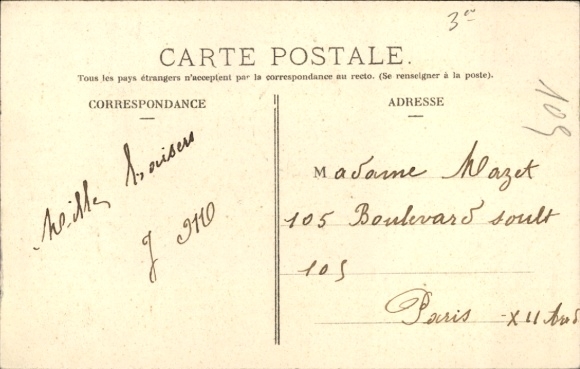 3e
CARTE POSTALE.
Tous les pays étrangers n'acceptent par la correspondance au recto. (Se renseigner à la poste).
CORRESPONDANCE
ADRESSE
105
Mille baisers
J M
Madame Mazet
105 Boulevard soult
105
Paris - XII Arrd